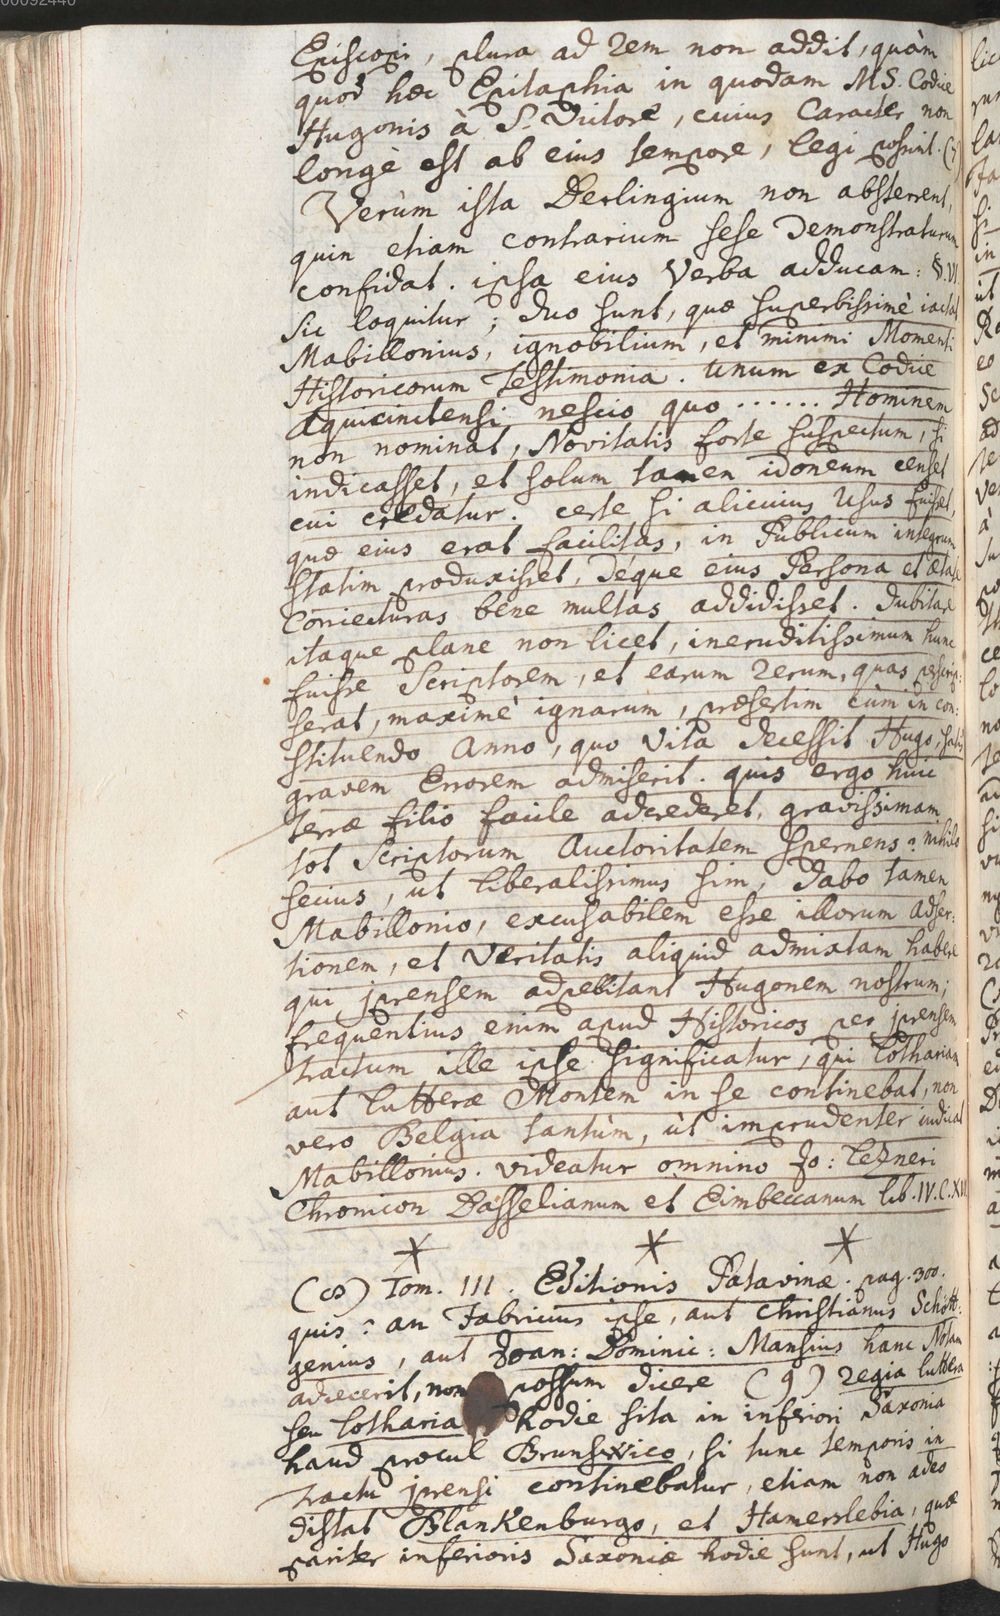 Episcopi, plura ad rem non addit, quàm
quod hæc Epitaphia in quodam MS. Codice
Hugonis à S. Victore, cuius Caracter non
longè est ab eius tempore, legi possunt.
Verùm ista Derlingium non absterrent,
quin etiam contrarium sese Demonstraturum
confidat. ipsa eius Verba adducam: §. VI
sic loquitur; Duo sunt, quæ superbissimè iactat
Mabillonius, ignobilium, et minimi Momenti
Historicorum Testimonia. Unum ex Codice
Aquicinctensi nescio quo ...... Hominem
non nominat, Novitatis forte suspectum, si
indicasset, et solum tamen idoneum censet
cui credatur. certe si alicuius Usus fuisset,
quæ eius erat facilitas, in Publicum integrum
statim produxisset, Deque eius Persona et ætate
Coniecturas bene multas addidisset. Dubitare
itaque plane non licet, ineruditissimum hunc
fuisse Scriptorem, et earum rerum, quas perscrip:
serat, maximè ignarum, præsertim cùm in con:
stituendo Anno, quo Vita decessit Hugo, satis
gravem Errorem admiserit. quis ergo huic
terræ filio facile adcrederet, gravissimam
tot Scriptorum Auctoritatem spernens? nihilo
secius, ut liberalissimus sim, Dabo tamen
Mabillonio, excusabilem esse illorum Adser:
tionem, et Veritatis aliquid admixtam habere
qui jprensem adpellitant Hugonem nostrum;
frequentius enim apud Historicos per jprensem
tractum ille ipse significatur, qui Lothariam
aut Lutteræ Montem in se continebat, non
vero Belgia tantùm, ùt imprudenter iudicat
Mabillonius. videatur omnino Jo: Lezneri
Chronicon Dasselianum et Eimbeccanum lib. IV. C. XVI
* * *
(8) Tom. III. Editionis Patavinæ. pag. 300.
quis? an Fabricius ipse, aut Christianus Schött:
genius, aut Joan: Dominic: Mansius hanc Notam
adiecerit, non possum dicere (9) regia luttera
seu Lotharia hodie sita in inferiori Saxonia
haud procul Brunswico, si tunc temporis in
tractu jprensi continebatur, etiam non adeo
distat Blankenburgo, et Hamerslebia, quæ
pariter inferioris Saxoniæ hodie sunt, ut Hugo